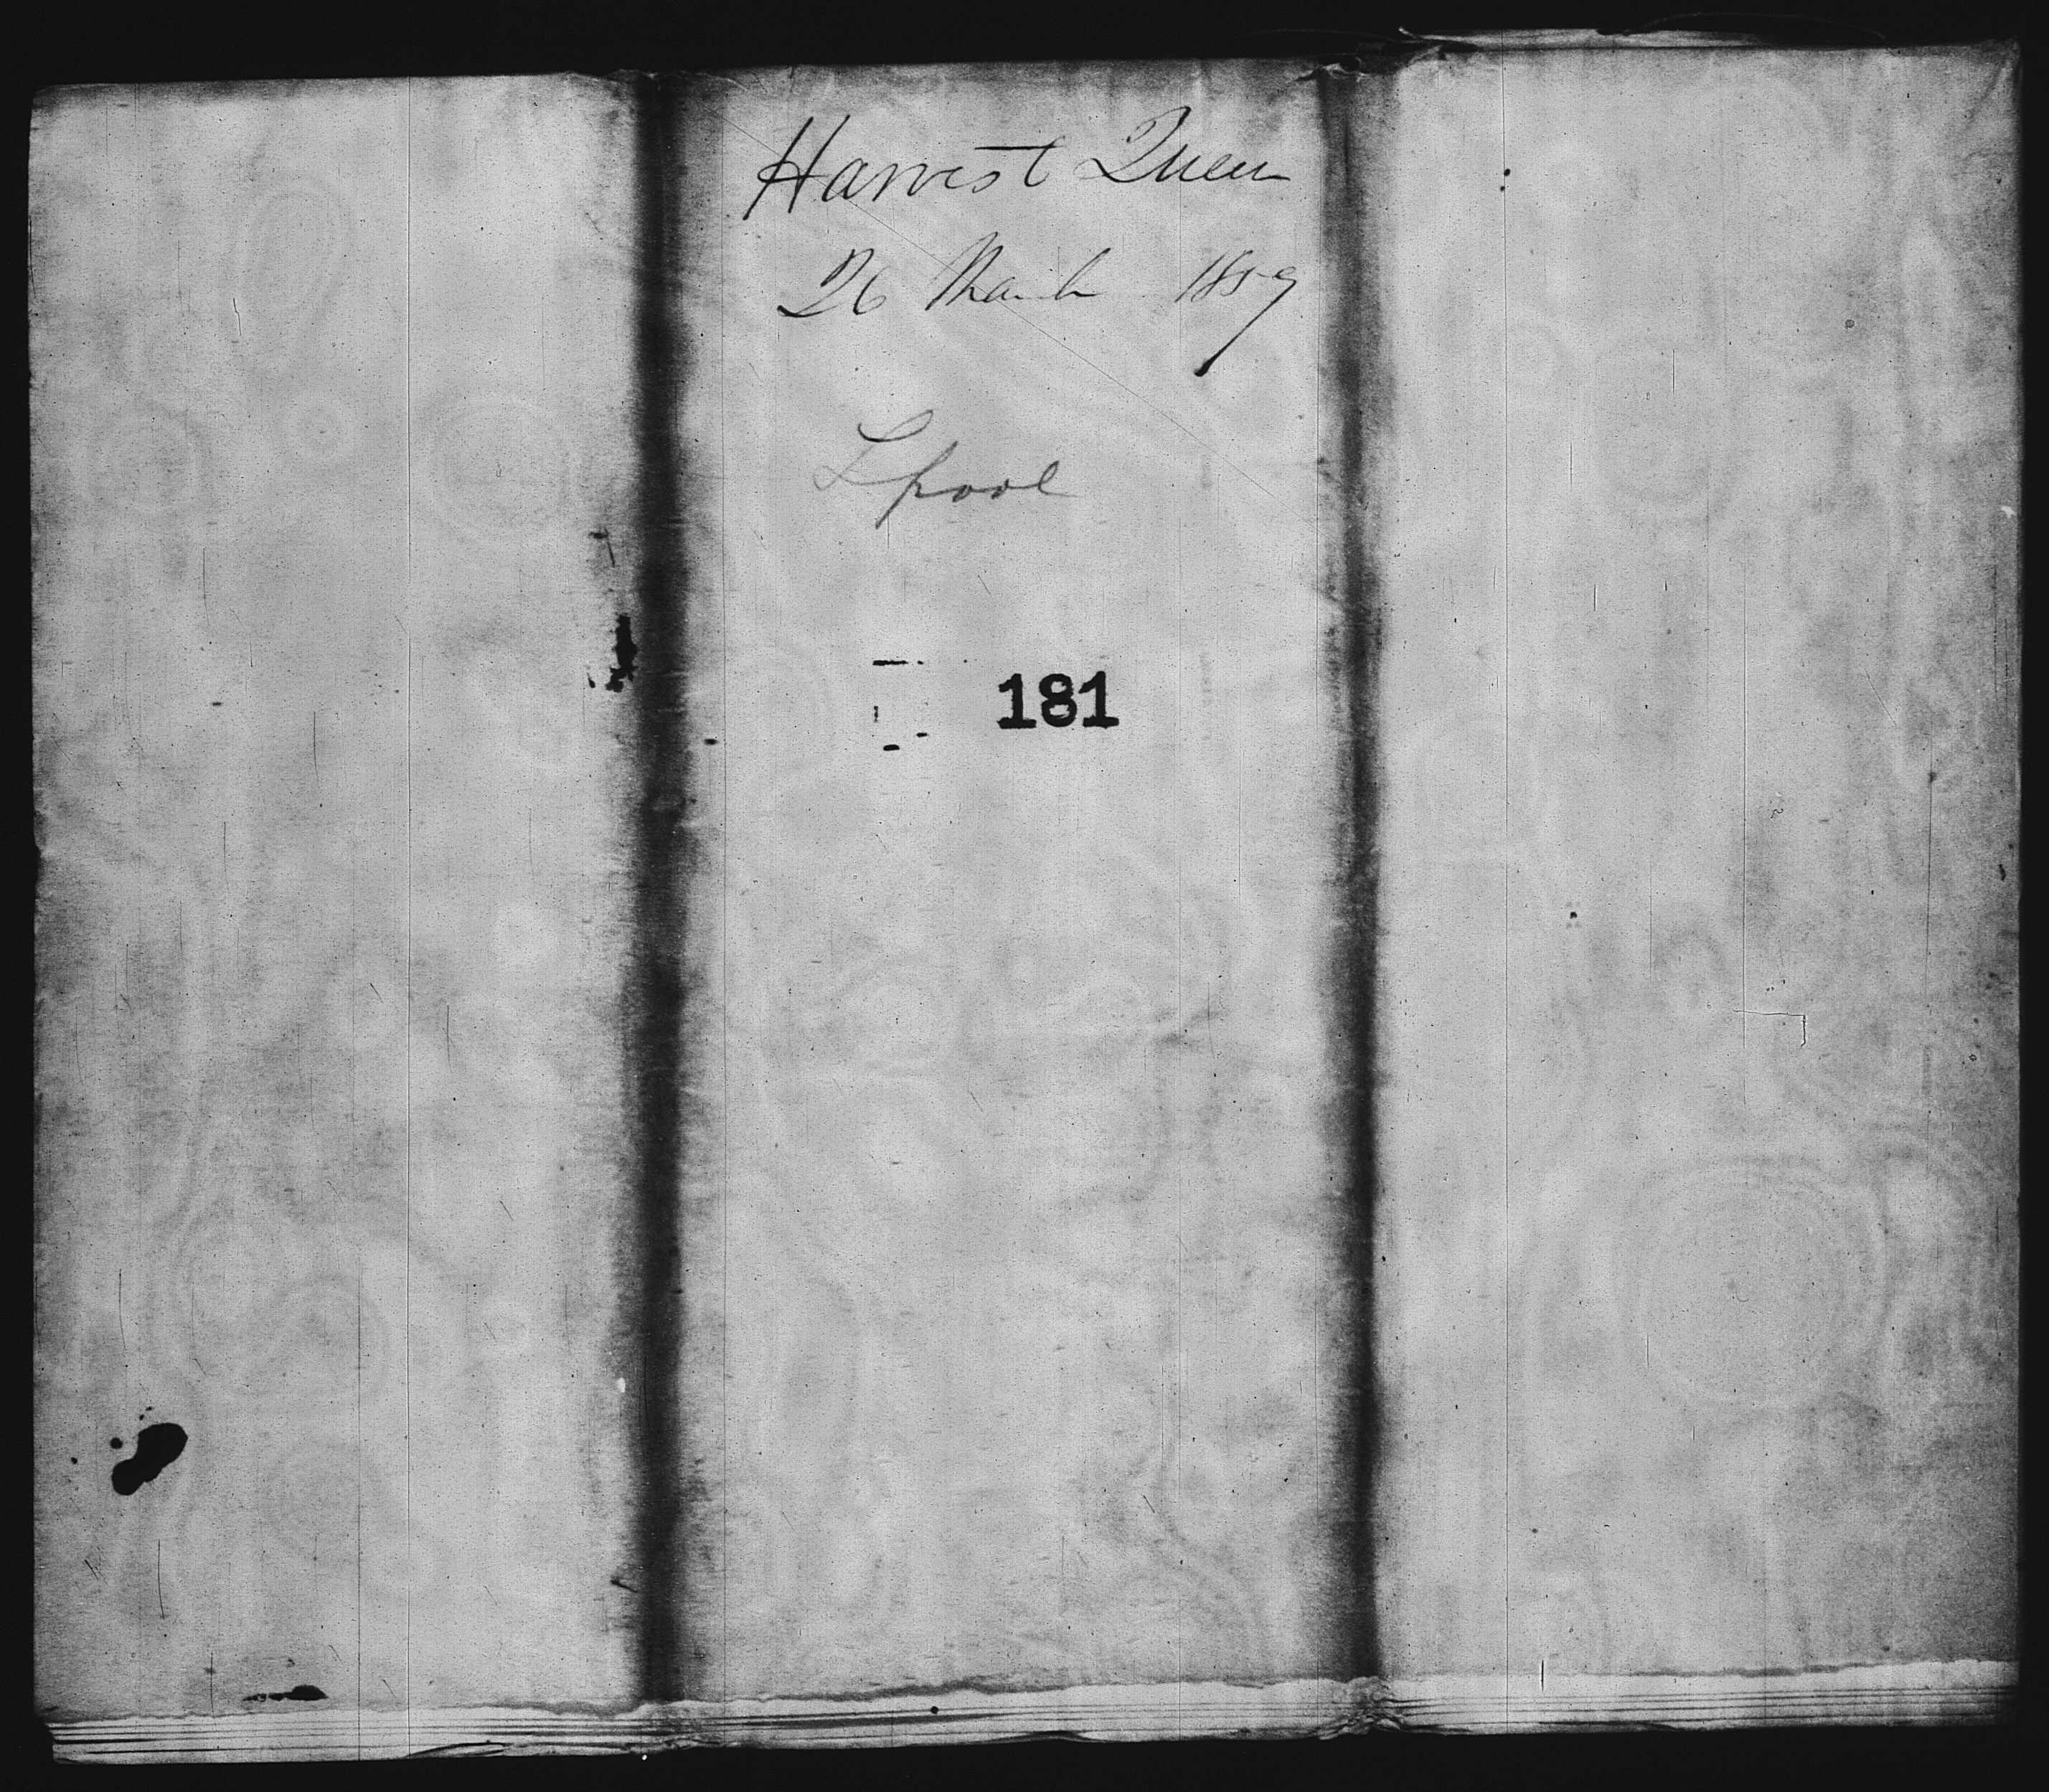 Harvest Queen
26 March 1859
Lpool
181